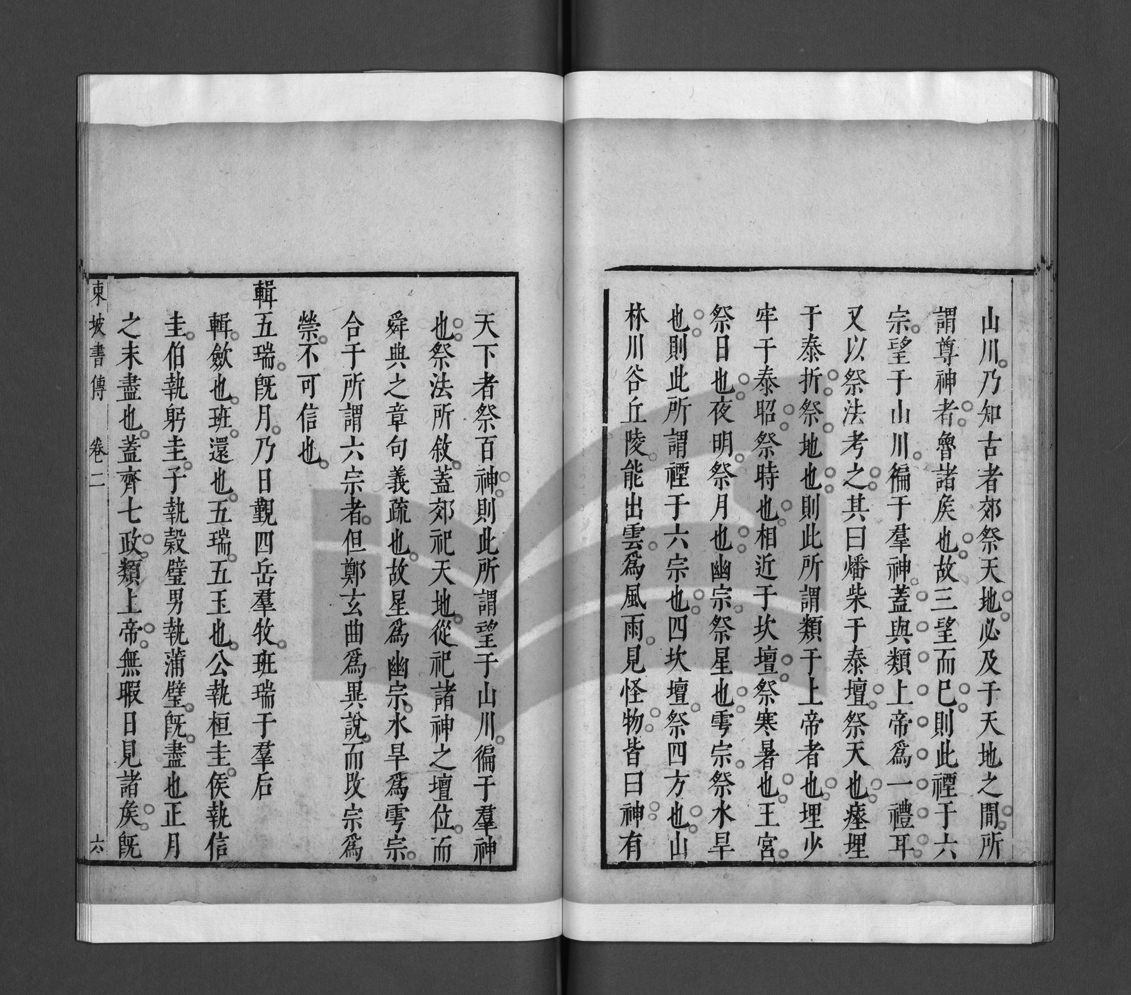 山川乃知古者郊祭天地必及于天地之間所
謂尊神者魯諸矦也故三望而已則此禋于六
宗望于山川徧于羣神蓋與類上帝爲一禮耳
又以祭法考之其曰燔柴于泰壇祭天也瘞埋
于泰折祭地也則此所謂類于上帝者也埋少
牢于泰昭祭時也相近于坎壇祭寒暑也王宮
祭日也夜明祭月也幽宗祭星也雩宗祭水旱
也則此所謂禋于六宗也四坎壇祭四方也山
林川谷丘陵能出雲爲風雨見怪物皆曰神有
天下者祭百神則此所謂望于山川徧于羣神
也祭法所敘蓋郊祀天地從祀諸神之壇位而
舜典之章句義疏也故星爲幽宗水旱爲雩宗
合于所謂六宗者但鄭玄曲爲異說而改宗爲
禜不可信也
輯五瑞旣月乃日覲四岳羣牧班瑞于羣后
輯歛也班還也五瑞五玉也公執桓圭矦執信
圭伯執躬圭子執榖璧男執蒲璧旣盡也正月
之末盡也蓋齊七政類上帝無暇日見諸矦旣
東坡書傳 卷二 六